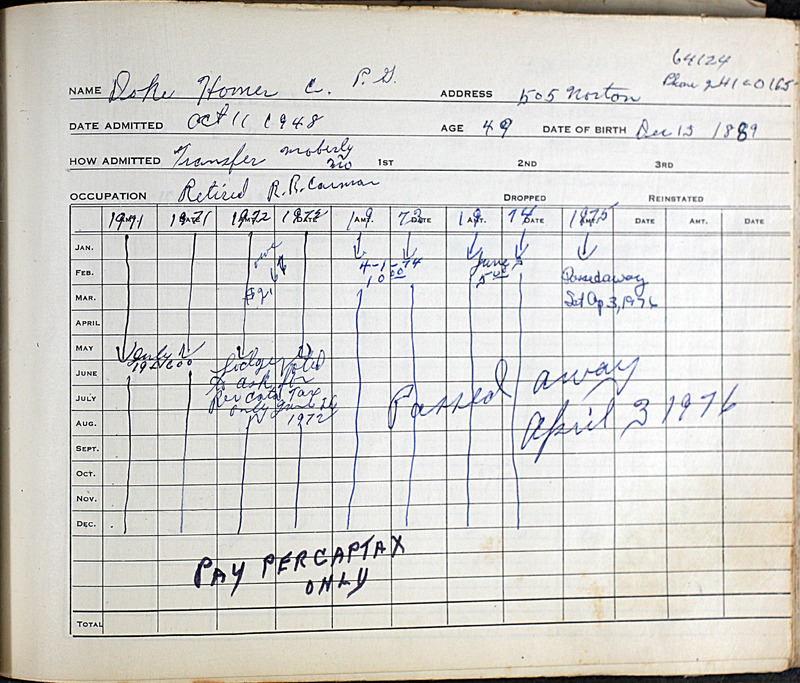 64124
Phone 241-0165
NAME Doke Homer C. P.G. ADDRESS 505 Norton
DATE ADMITTED Oct 11 1948 AGE 49 DATE OF BIRTH Dec 13 1889
HOW ADMITTED Transfer Moberly Mo 1ST 2ND 3RD
OCCUPATION Retired R.R. Carman DROPPED REINSTATED
1971 1971 1972 1972 19 73 19 74 1975
AMT. DATE AMT. DATE AMT. DATE AMT. DATE AMT. DATE AMT. DATE
JAN.
FEB. 4-1-74 June 5
10 00 5 00 Passed away
MAR. $2 Sat Ap 3, 1976
APRIL
MAY July 1
JUNE Lodge voted
to ask for
JULY Per Cap Tax
only June 26
AUG. 1972
Passed away
April 3 1976
SEPT.
OCT.
NOV.
DEC.
PAY PERCAPTAX
ONLY
TOTAL